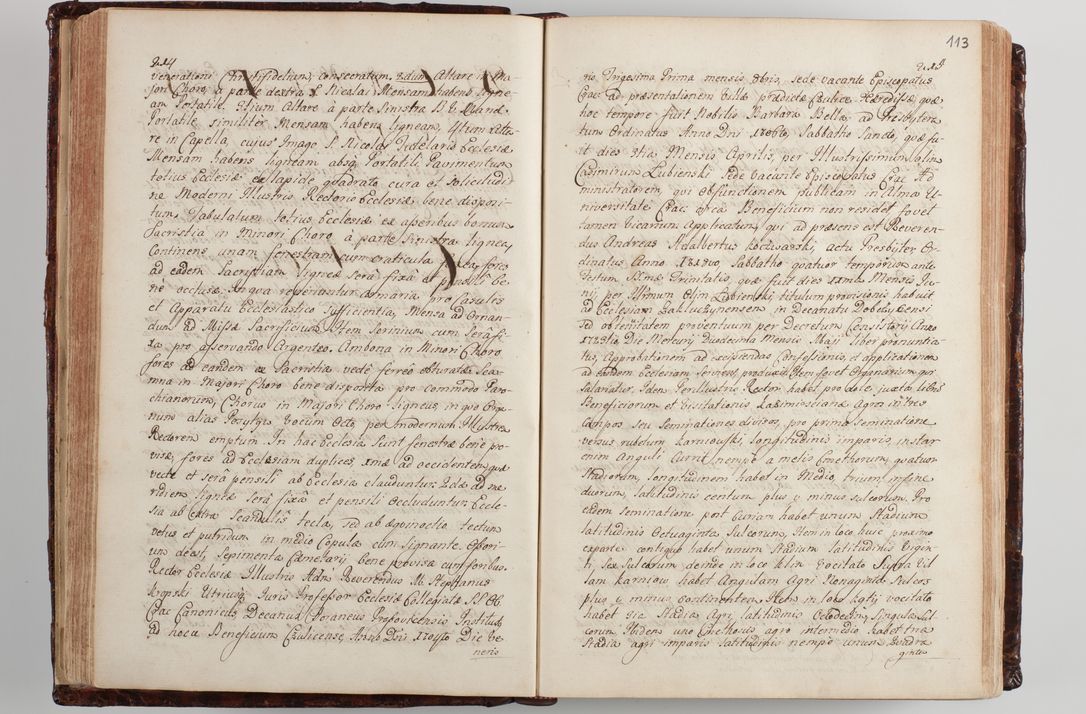 214
venerationi Christifidelium, consecratum. 2dum Altare in Ma-
jori Choro à parte dextra S. Nicolai Mensam habens ligne-
am Portatile. 3tium Altare à parte Sinistra
Portatile similiter Mensam habens ligneam, 4tum Alta-
re in Capella, cujus Imago S. Nicolai Ecclesiæ
Mensam habens ligneam absq Portatile Pavimentum
totius Ecclesiæ ex lapide quadrato cura et Solicitudi-
ne Moderni Illustris Rectoris Ecclesiæ bene disposi-
tum, Tabulatum totius Ecclesiæ ex asseribus bonum
Sacristia in Minori Choro à parte Sinistra lignea,
Continens unam fenestram cum craticula fores
ad eandem Sacristiam ligneæ Serâ fixâ ac pensili be-
ne occlusæ. In qua reperiuntur Armaria pro Casulis
et Apparatu Ecclesiastico Sufficientia, Mensa ad Ornan-
dum ad Missæ Sacrificium. Item Scrinium cum Serâ fi-
xa pro asservando Argenteo. Ambona in Minori Choro
fores ad eandem ex Sacristia vecte ferreo obturatæ Sca-
mna in Majori Choro bene disposita pro commodo Paro-
chianorum, Chorus in Majori Choro ligneus in quo Orga-
num alias Pozytyw vocum Octo, per modernum Illustrem
Rectorem emptum. In hac Ecclesia Sunt fenestræ bene pro-
visæ, fores ad Ecclesiam duplices 1mæ ad occidentem, quæ
vecte et serâ pensili ab Ecclesia clauduntur 2dæ ad me-
ridiem ligneæ Serâ fixâ et pensili occluduntur. Eccle-
sia ab extra Scandulis tecta, sed ab æquinoctio tectum
vetus et putridum in medio Copula cum Signante. Ossori-
um deest, Sepimenta Cæmeterii bene provisa cum foribus.
Rector Ecclesiæ Illustris Adm Reverendus M. Stephanus
Lipski Utriusq Juris Professor Ecclesiæ Collegiatæ SS. OO.
Crac Canonicus, Decanus Foraneus Institutus
ad hocce Beneficium Czulicense Anno Dni Die
neris
113
ris Trigesima Prima mensis 8bris, sede vacante Episcopatus
Crac ad præsentationem villæ prædictæ Czulice Hæredissæ, quæ
hoc tempore fuit Nobilis Barbara Bella; ad Presbytera-
tum Ordinatus Anno Dni Sabbatho Sancto, quæ fu-
it dies 3tia Mensis Aprilis per Illustrissimum olim
Casimirum Lubienski Sede vacante Episcopatus Crac Ad-
ministratorem, qui ob functionem publicam in Alma U-
niversitate Crac circa Beneficium non residet fovet
tamen Vicarium Applicatum, qui ad præsens est Reveren-
dus Andreas Adalbertus actu Presbyter Or-
dinatus Anno Sabbatho quatuor temporum ante
Festum SSmæ Trinitatis, quæ fuit dies Mensis Ju-
nii, per Illrmum Olim Lubienski, titulum provisionis habuit
ad Ecclesiam in Decanatu
sed ob tenuitatem proventuum per Decretum Consistorii Anno
Die Mercurii Duodecima Mensis Maji liber pronuntia-
tus, Approbationem ad excipiendas Confessiones et applicationem
ad eandem Ecclesiam Serviens, produxit. Item fovet Organarium qui
salariatur. Idem Perillustris Rector habet pro dote, juxta libros
Beneficiorum et Visitationis Agros in tres
campos seu Seminationes divisos, pro prima Seminatione
versus rubetum karniowski longitudinis imparis, instar
enim Anguli currit nempe a metis Cmethonum, quatuor
Stadiorum, longitudinem habet in Medio, trium, in fine
duorum, latitudinis centum plus, minus sulcorum. Pro
eadem Seminatione post Curiam habet unum Stadium
latitudinis Octuaginta Sulcorum, Item in loco huic proximo
ex parte contiguo habet unum Stadium latitudinis Vigin-
ti, Sex Sulcorum, deinde in loco klin vocitato Supra Vil-
lam karniow habet Angulum Agri Nonaginta Sulcos
plus, minus continentem. Item in loco vocitato
habet tria Stadia Agri latitudinis Octodecim, Singula Sul-
corum, Ibidem uno Cmethonis agro intermedio habet tria
Stadia agri imparis latitudinis nempe unum Quadra-
ginta